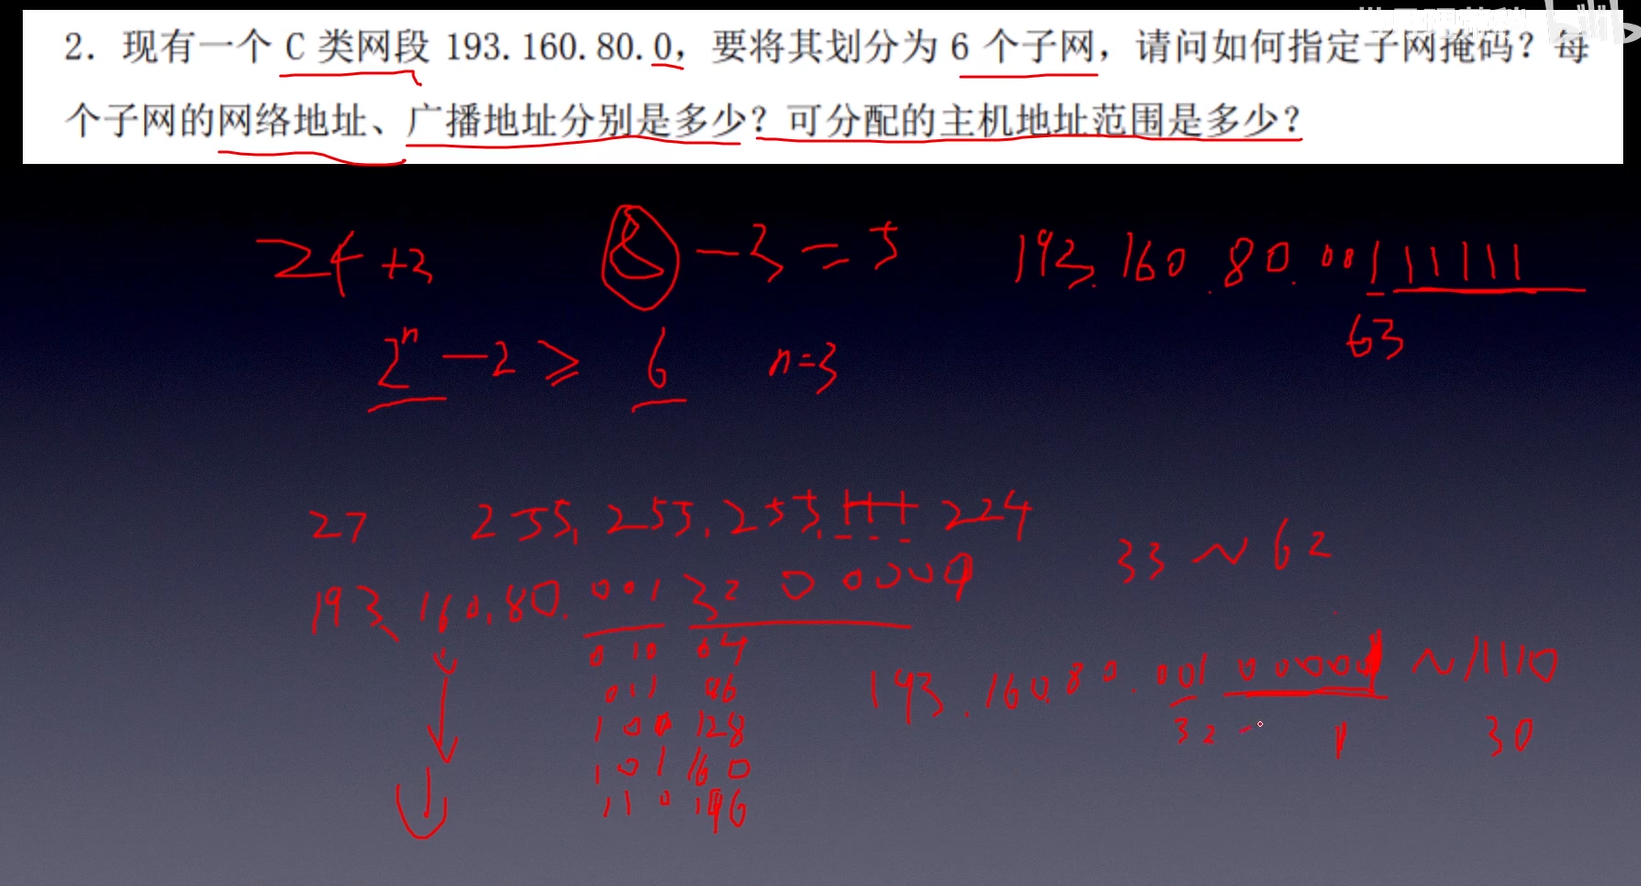 2. 现有一个 C 类网段 193.160.80.0，要将其划分为 6 个子网，请问如何指定子网掩码？每
个子网的网络地址、广播地址分别是多少？可分配的主机地址范围是多少？
24+3 8-3=5 193.160.80.00111111
63
2ⁿ-2≥6 n=3
27 255.255.255.111 224
33~62
193.160.80.001 32 00000
010 64
011 96
100 128
101 160
110 196
193.160.80.00100001~11110
32 1 30